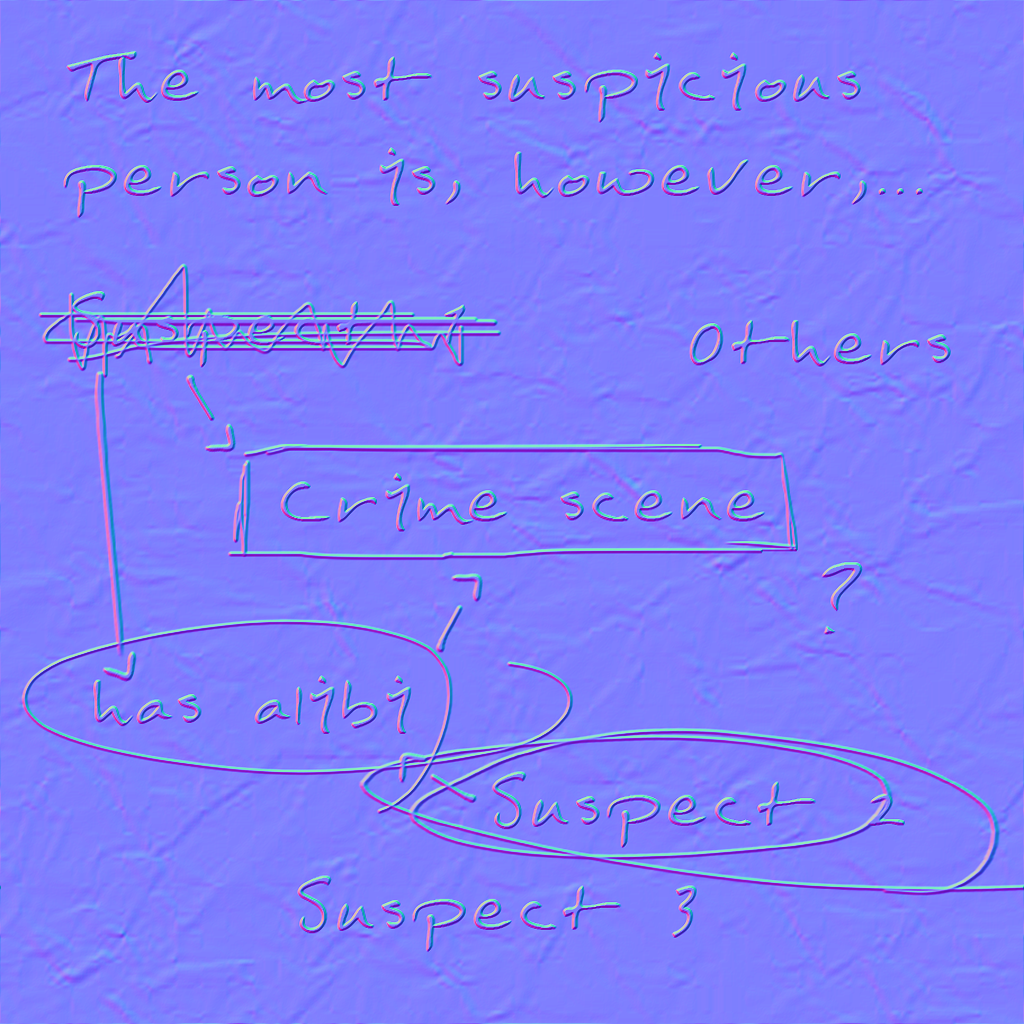 The most suspicious
person is, however,...
Others
Crime scene
?
has alibi
Suspect 2
Suspect 3